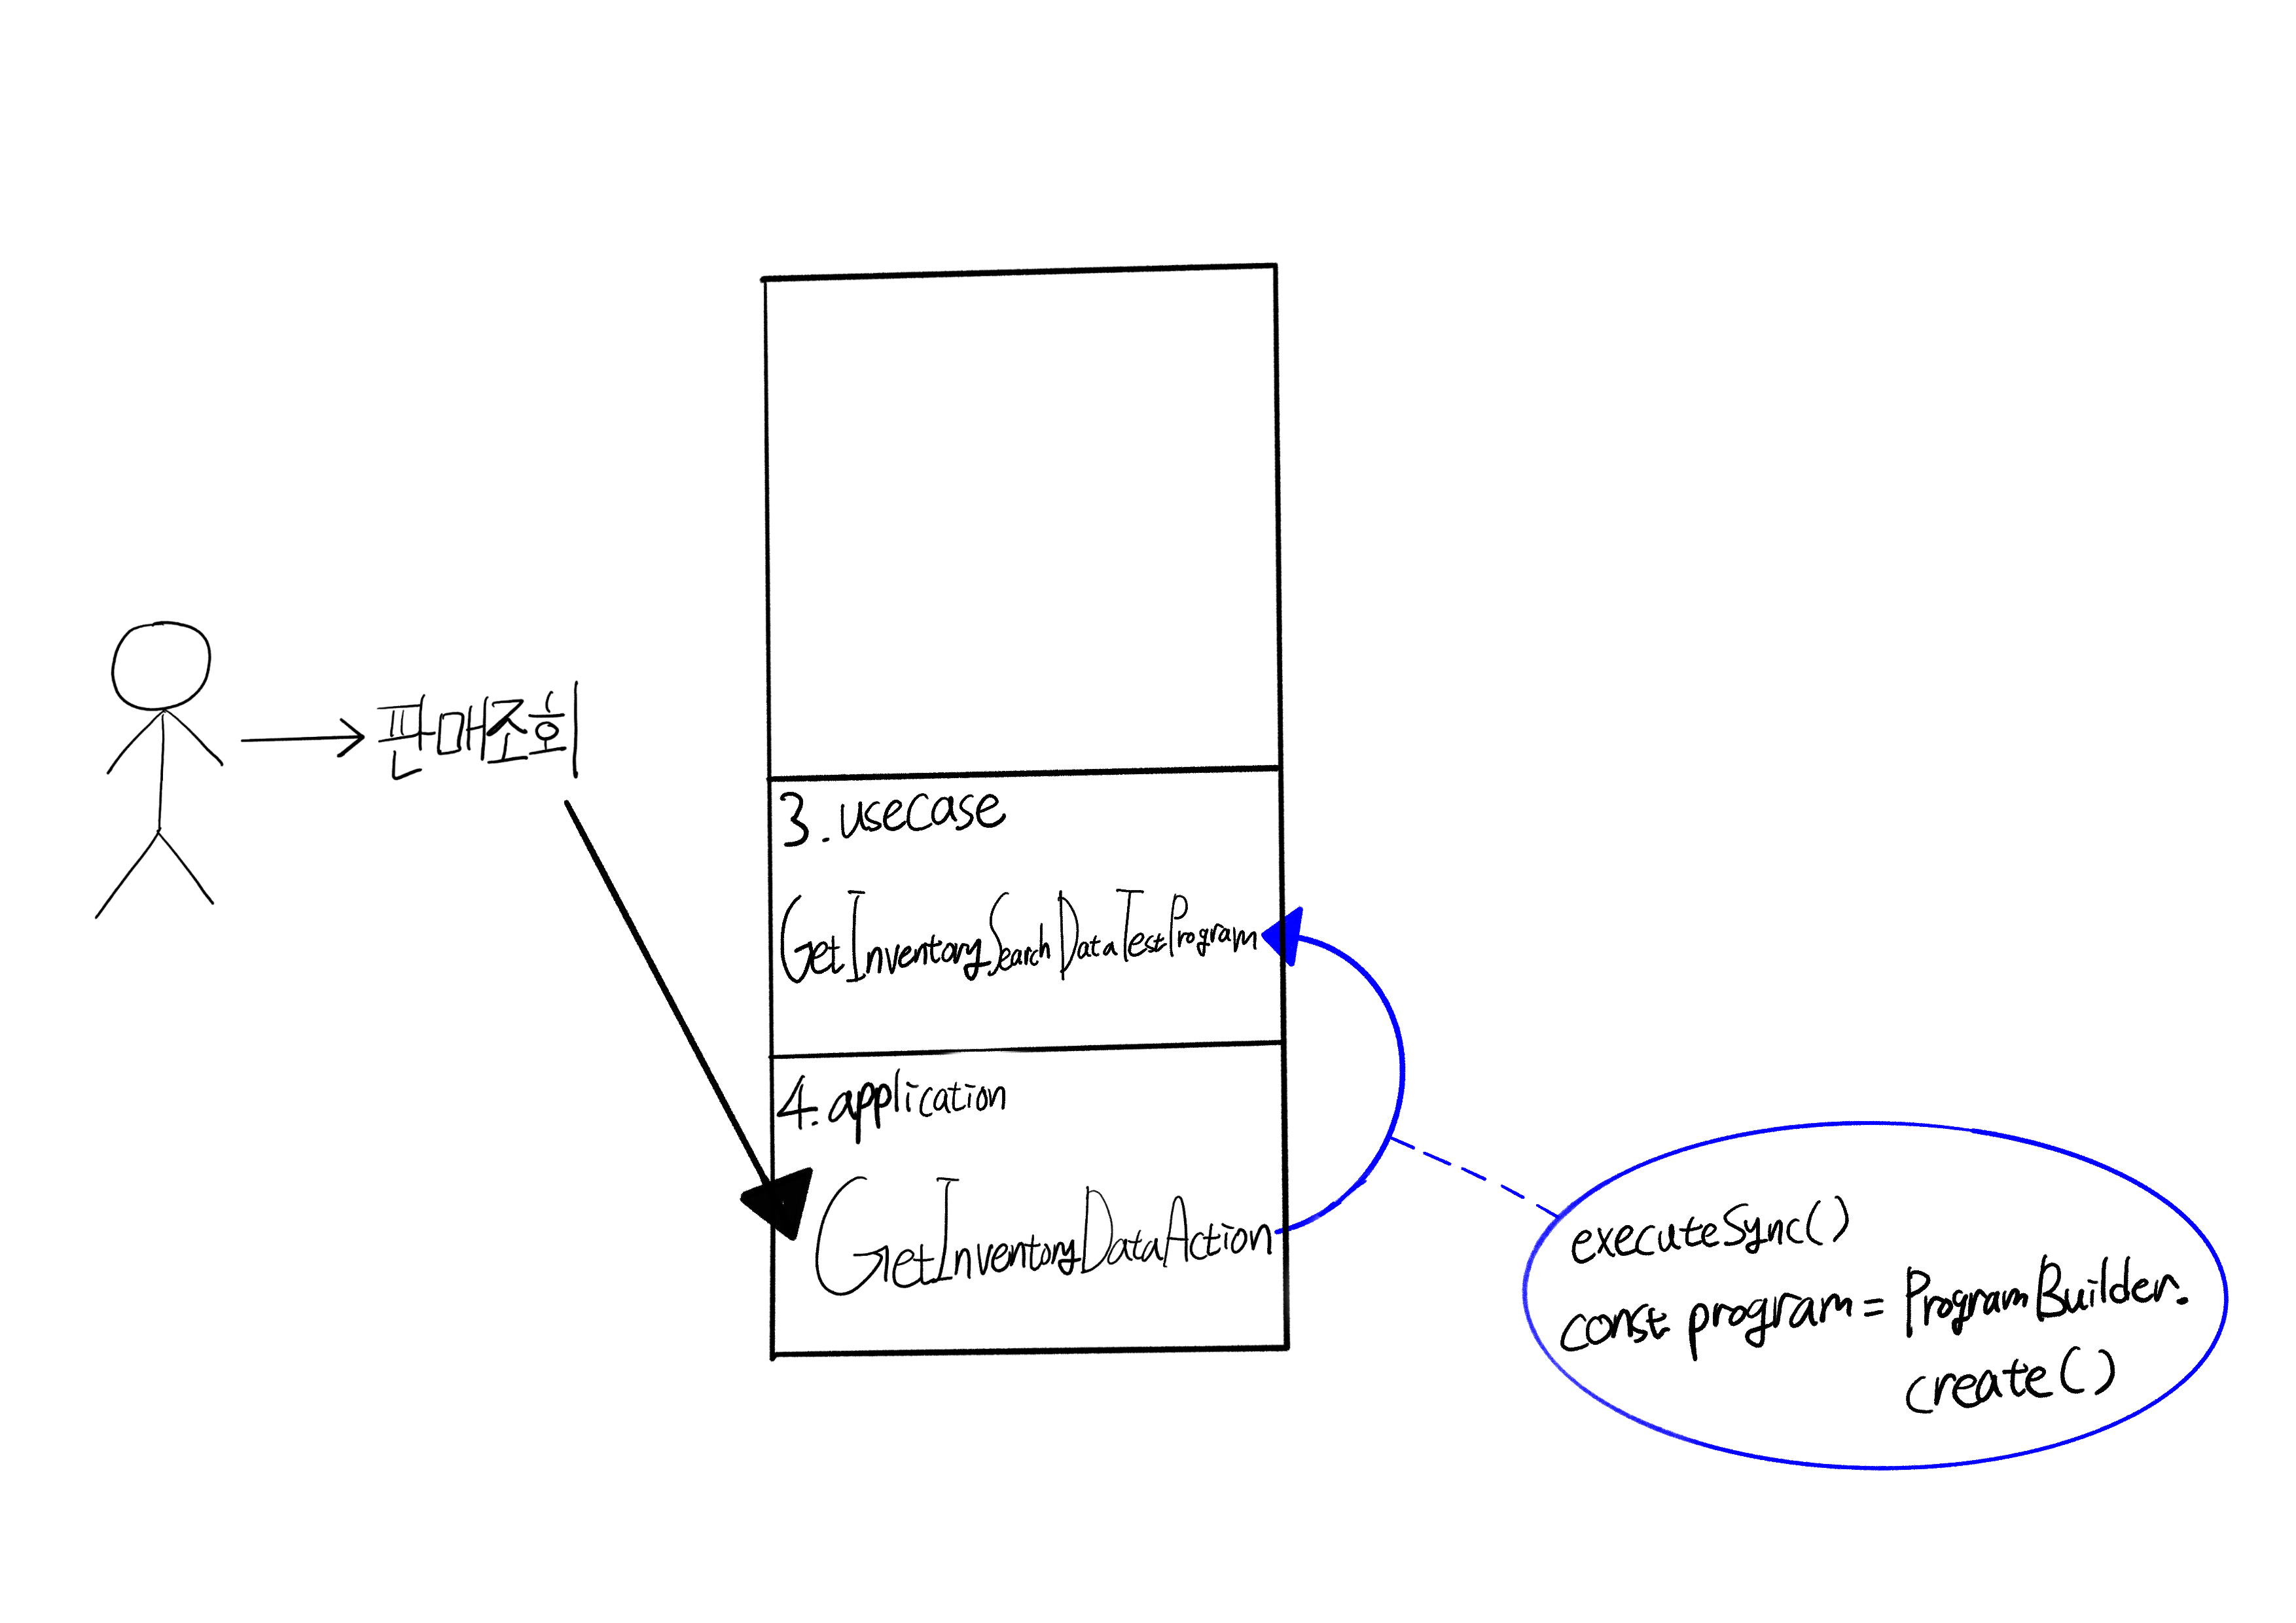 판매조회
3. usecase
GetInventorySearchDataTestProgram
4. application
GetInventoryDataAction
executeSync()
const program = ProgramBuilder.
create()